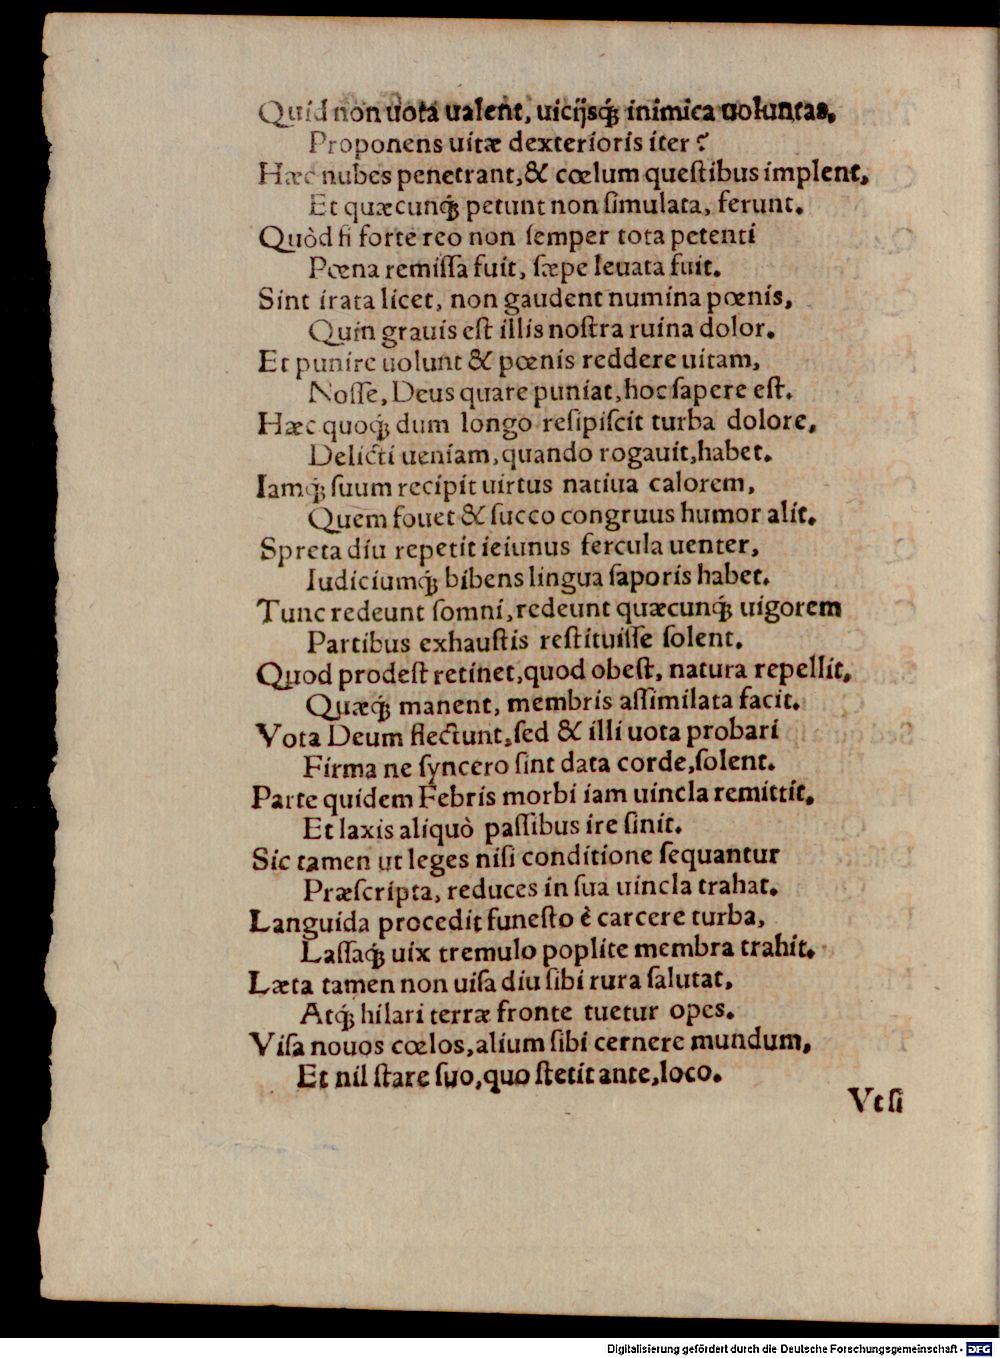 Quid non uota ualent, uicijsq́ꝫ inimica uoluntas,
Proponens uitæ dexterioris iter?
Hæc nubes penetrant,& cœlum queſtibus implent,
Et quæcunq́ꝫ petunt non ſimulata, ferunt.
Quòd ſi forte reo non ſemper tota petenti
Pœna remiſſa fuit, ſæpe leuata fuit.
Sint irata licet, non gaudent numina pœnis,
Quin grauis eſt illis noſtra ruina dolor.
Et punire uolunt & pœnis reddere uitam,
Noſſe, Deus quare puniat, hoc ſapere eſt.
Hæc quoq́ꝫ dum longo reſipiſcit turba dolore,
Delicti ueniam, quando rogauit, habet.
Iamq́ꝫ ſuum recipit uirtus natiua calorem,
Quem fouet & ſucco congruus humor alit.
Spreta diu repetit ieiunus fercula uenter,
Iudiciumq́ꝫ bibens lingua ſaporis habet.
Tunc redeunt ſomni, redeunt quæcunq́ꝫ uigorem
Partibus exhauſtis reſtituiſſe ſolent.
Quod prodeſt retinet, quod obeſt, natura repellit,
Quæq́ꝫ manent, membris aſſimilata facit.
Vota Deum flectunt, ſed & illi uota probari
Firma ne ſyncero ſint data corde, ſolent.
Parte quidem Febris morbi iam uincla remittit,
Et laxis aliquò paſſibus ire ſinit.
Sic tamen ut leges niſi conditione ſequantur
Præſcripta, reduces in ſua uincla trahat.
Languida procedit funeſto è carcere turba,
Laſſaq́ꝫ uix tremulo poplite membra trahit.
Læta tamen non uiſa diu ſibi rura ſalutat,
Atq́ꝫ hilari terræ fronte tuetur opes.
Viſa nouos cœlos, alium ſibi cernere mundum,
Et nil ſtare ſuo, quo ſtetit ante, loco.
Vt ſi
Digitalisierung gefördert durch die Deutsche Forschungsgemeinschaft - DFG